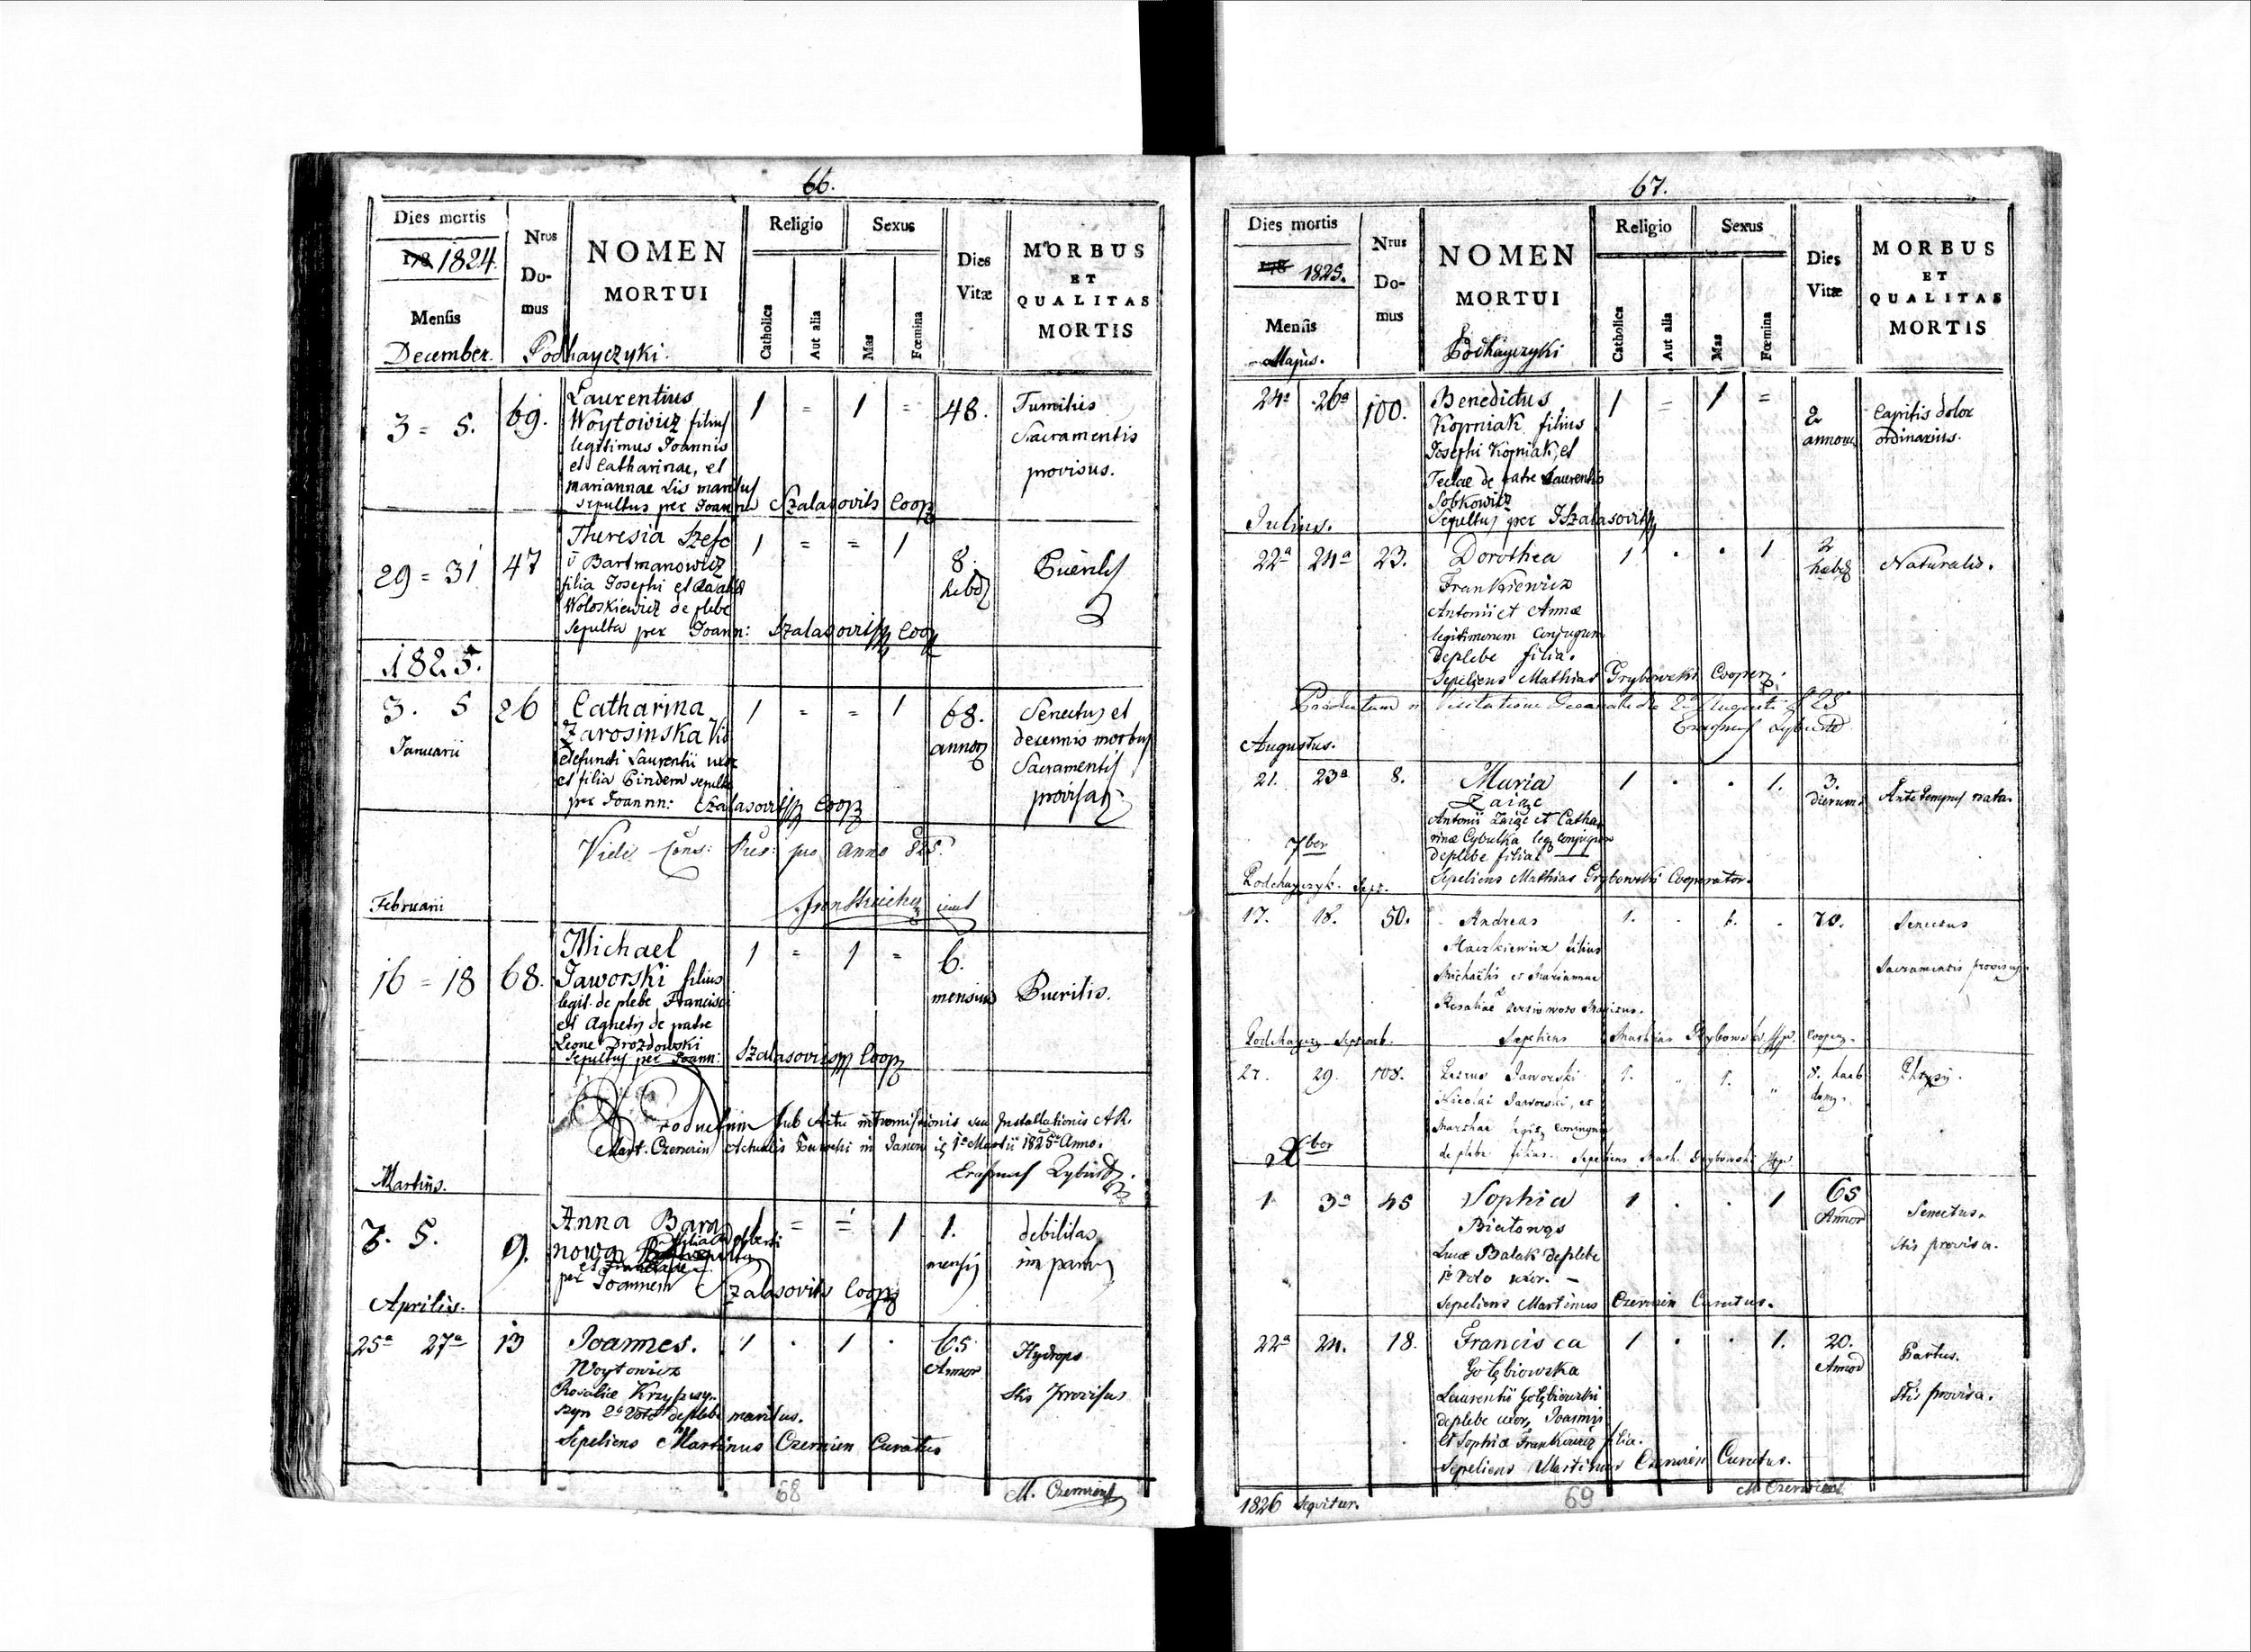 66.
Dies mortis
178 1824.
Mensis
December.
Nrus
Do-
mus
Podhayczyki.
NOMEN
MORTUI
Religio
Catholica
Aut alia
Sexus
Mas
Fœmina
Dies
Vitæ
MORBUS
ET
QUALITAS
MORTIS
3 = 5. 69. Laurentius 1 = 1 = 48. Tumilus
Woytowicz filius Sacramentis
legitimus Joannis provisus.
et Catharinae, et
mariannae Lis maritus
Sepultus per Joannem Szalasovits Coop
29 = 31 47 Theresia Szefc 1 = = 1 8. Puerilis
Bartmanowicz hebd
filia Josephi et
Woloskiewicz de plebe
Sepulta per Joann: Szalasovits Coop
1825.
3. 5 26 Catharina 1 = = 1 68. Senectus et
Januarii Zarosinska annor decennis morbus
defuncti Laurentii uxor Sacramentis
et filia Pindera sepulta provisa
per Joannn: Szalasovits Coop
Vidi Cons: pro anno 825.
Februarii
16 = 18 68. Michael 1 = 1 = 6. Puerilis.
Jaworski filius mensium
legit. de plebe Francisci
et Agnetis de patre
Leone Drozdowski
Sepultus per Joann: Szalasovits Coop
Productum sub Actu intromissionis seu Installationis AR.
Mart. Czermin Actualis Parochi in Janow 1a Martii 1825 Anno.
Erasmus
Martius.
3. 5. 9. Anna Bara 1 = = 1 1. debilitas
nowa filia mensis in partu
et
per Joannem Szalasovits Coop
Aprilis.
25a 27a 13 Joannes. 1 . 1 . 65. Hydrops
Woytowicz Annor Stis Provisus
Rosaliæ Krzypczy-
szyn 2o Voto deplebe maritus.
Sepeliens Martinus Czermin Curatus
68
M. Czermin
67.
Dies mortis
178 1825.
Mensis
Majus.
Nrus
Do-
mus
NOMEN
MORTUI
Podhayczyki
Religio
Catholica
Aut alia
Sexus
Mas
Fœmina
Dies
Vitæ
MORBUS
ET
QUALITAS
MORTIS
24a 26a 100. Benedictus 1 = 1 = 2 Capitis dolor
Koprniak filius annorum ordinarius.
Josephi Koprniak, et
Teclae de patre Laurentio
Sobkowicz
Sepultus per JSzalasovits
Julius.
22a 24a 23. Dorothea 1 . . 1 2 Naturalis.
Frankiewicz hebd
Antonii et Annæ
legitimorum Conjugum
deplebe filia.
Sepeliens Mathias Grybowski Cooper:
Productum in Visitatione Decanali die 2a Augusti 825
Erasmus
Augustus.
21. 23a 8. Maria 1 . . 1. 3. Ante tempus nata.
Zaiąc dierum.
Antonii Zaiąc et Catha
rinæ Cybulka leg Conjugum
deplebe filia.
Sepeliens Mathias Grybowski Cooperator.
7ber
Podchayczyk. Sept.
17. 18. 50. Andreas 1. . 1. . 70. Senectus
filius
Michaëlis et Mariannae Sacramentis provisus.
Rosaliae tertio voto Maritus.
Podchayczy Septemb. Sepeliens Mathias Grybowski Cooper.
27. 29. 108. Petrus Jaworski 1. " 1. " 8. haeb Phtysis.
Nicolai Jaworski, et domy.
Marthae legit conjugum
de plebe filius. Sepeliens Math. Grybowski
Xber
1 3a 45 Sophia 1 . . 1 65 Senectus.
Białowąs Annor Stis provisa.
Lucæ Balak deplebe
1o Voto uxor. –
Sepeliens Martinus Czermin Curatus.
22a 24. 18. Francisca 1 . . 1. 20. Partus.
Gołębiowska Annor Stis provisa.
Laurentii Gołębiowski
deplebe uxor, Joannis
et Sophiæ Frankiewicz filia.
Sepeliens Martinus Czermin Curatus.
1826 Sequitur.
69
M. Czermin